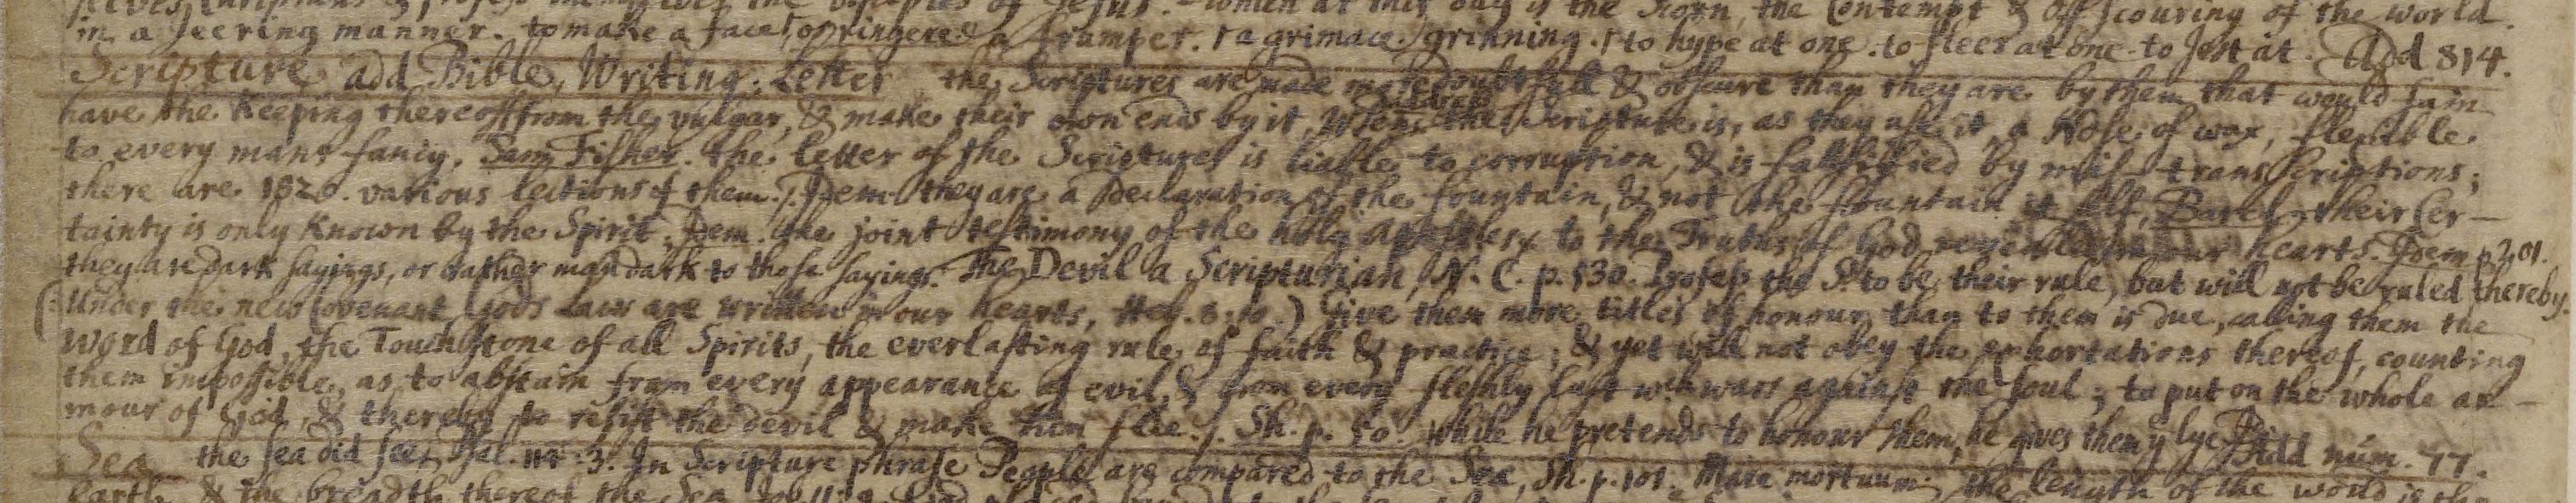 in a jeering manner. to make a face, or ringere a frumper. a grimace. grinning. to hype at one. to fleer at one. to Jest at. Add 814.
Scripture add Bible, Writing. Letter the Scriptures are made more doubtfull & obscure than they are by them that would fain
have the Keeping thereof from the vulgar, & make their own ends by it, the Scripture is, as they use it, a Nose of wax, flexible
to every mans fancy. Sam Fisher. the letter of the Scriptures is liable to corruption, & is falsified by mis-transscriptions;
there are 1820. various lections of them. Idem. they are a Declaration of the fountain, & not the fountain it self, Barcl. their Cer-
tainty is only Known by the Spirit. Idem. the joint testimony of the holy to the Truths of God our hearts. Idem p 201.
they are dark sayings, or rather man dark to those sayings. The Devil a Scripturian, N. C. p. 130. Profess the S. to be their rule, but will not be ruled thereby.
(Under the new Covenant Gods Laws are written in our hearts, Heb. 8. 10.) Give them more titles of honour than to them is due, calling them the
Word of God, the Touchstone of all Spirits, the everlasting rule of faith & practice; & yet will not obey the exhortations thereof, counting
them impossible, as to abstain from every appearance of evil, & from every fleshly lust wch wars against the Soul; to put on the whole ar-
mour of God, & thereby to resist the devil & make him flee. Sh. p. 50. while he pretends to honour them, he gives them y lye Add num. 77.
Sea the sea did see, Psal. 114. 3. In Scripture phrase People are compared to the Sea, Sh. p. 101. Mare mortuum. the length of the world is
earth & the breadth thereof the Sea